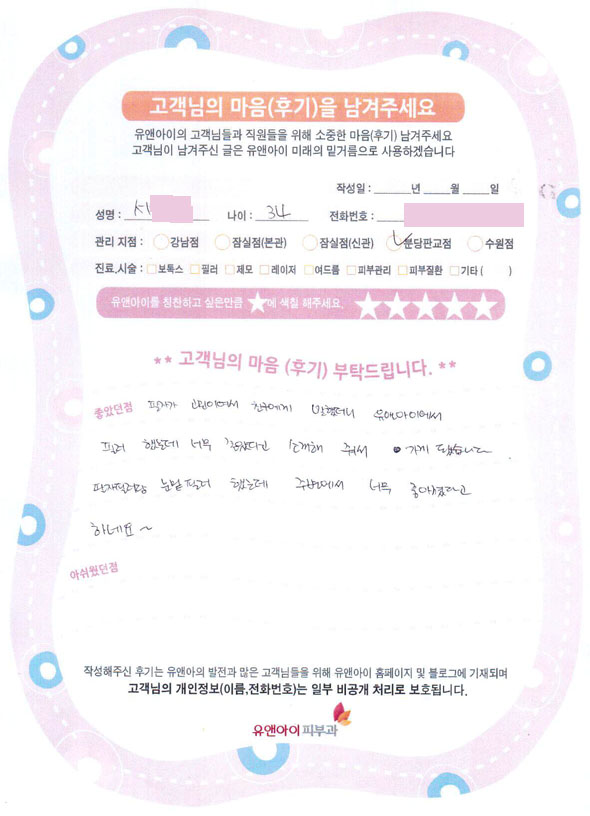 고객님의 마음(후기)을 남겨주세요
유앤아이의 고객님들과 직원들을 위해 소중한 마음(후기) 남겨주세요
고객님이 남겨주신 글은 유앤아이 미래의 밑거름으로 사용하겠습니다
작성일 : ______년 _____월 _____일
성명 : 나이 : 34 전화번호 :
관리 지점 : 강남점 잠실점(본관) 잠실점(신관) 분당판교점 수원점
진료.시술 : 보톡스 필러 제모 레이저 여드름 피부관리 피부질환 기타 ( )
유앤아이를 칭찬하고 싶은만큼 ★에 색칠 해주세요. ★★★★★
** 고객님의 마음 (후기) 부탁드립니다. **
좋았던점 팔자가 고민이여서 친구에게 말했더니 유앤아이에서
필러 했는데 너무 좋았다고 소개해 줘서 가게 됐습니다
팔자필러랑 눈밑필러 했는데 주변에서 너무 좋아졌다고
하네요~
아쉬웠던점
작성해주신 후기는 유앤아의 발전과 많은 고객님들을 위해 유앤아이 홈페이지 및 블로그에 기재되며
고객님의 개인정보(이름,전화번호)는 일부 비공개 처리로 보호됩니다.
유앤아이피부과